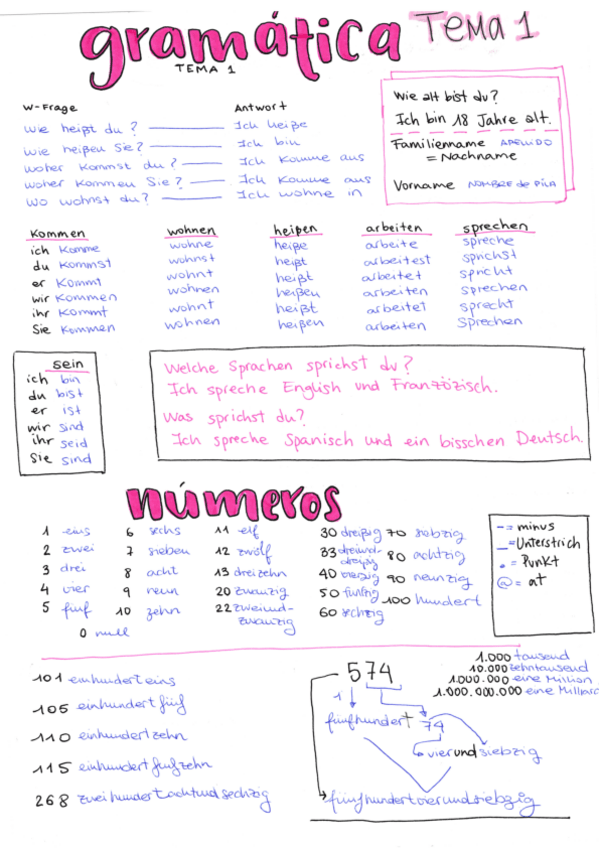 gramática TEMA 1
TEMA 1
W-Frage Antwort
Wie heißt du? Ich heiße
Wie heißen Sie? Ich bin
Woher kommst du? Ich komme aus
Woher kommen Sie? Ich komme aus
Wo wohnst du? Ich wohne in
Wie alt bist du?
Ich bin 18 Jahre alt.
Familienname APELLIDO
= Nachname
Vorname NOMBRE de PILA
kommen wohnen heißen arbeiten sprechen
ich komme wohne heiße arbeite spreche
du kommst wohnst heißt arbeitest sprichst
er kommt wohnt heißt arbeitet spricht
wir kommen wohnen heißen arbeiten sprechen
ihr kommt wohnt heißt arbeitet sprecht
Sie kommen wohnen heißen arbeiten sprechen
sein
ich bin
du bist
er ist
wir sind
ihr seid
Sie sind
Welche Sprachen sprichst du?
Ich spreche English und Französisch.
Was sprichst du?
Ich spreche Spanisch und ein bisschen Deutsch.
números
1 eins 6 sechs 11 elf 30 dreißig 70 siebzig
2 zwei 7 sieben 12 zwölf 33 dreiund-dreißig 80 achtzig
3 drei 8 acht 13 dreizehn 40 vierzig 90 neunzig
4 vier 9 neun 20 zwanzig 50 fünfzig 100 hundert
5 fünf 10 zehn 22 zweiund-zwanzig 60 sechzig
0 null
- = minus
_ = Unterstrich
. = Punkt
@ = at
101 einhunderteins
105 einhundertfünf
110 einhundertzehn
115 einhundertfünfzehn
268 zweihundertachtundsechzig
574
1
fünfhundert 74
vierundsiebzig
fünfhundertvierundsiebzig
1.000 tausend
10.000 zehntausend
1.000.000 eine Million
1.000.000.000 eine Milliard